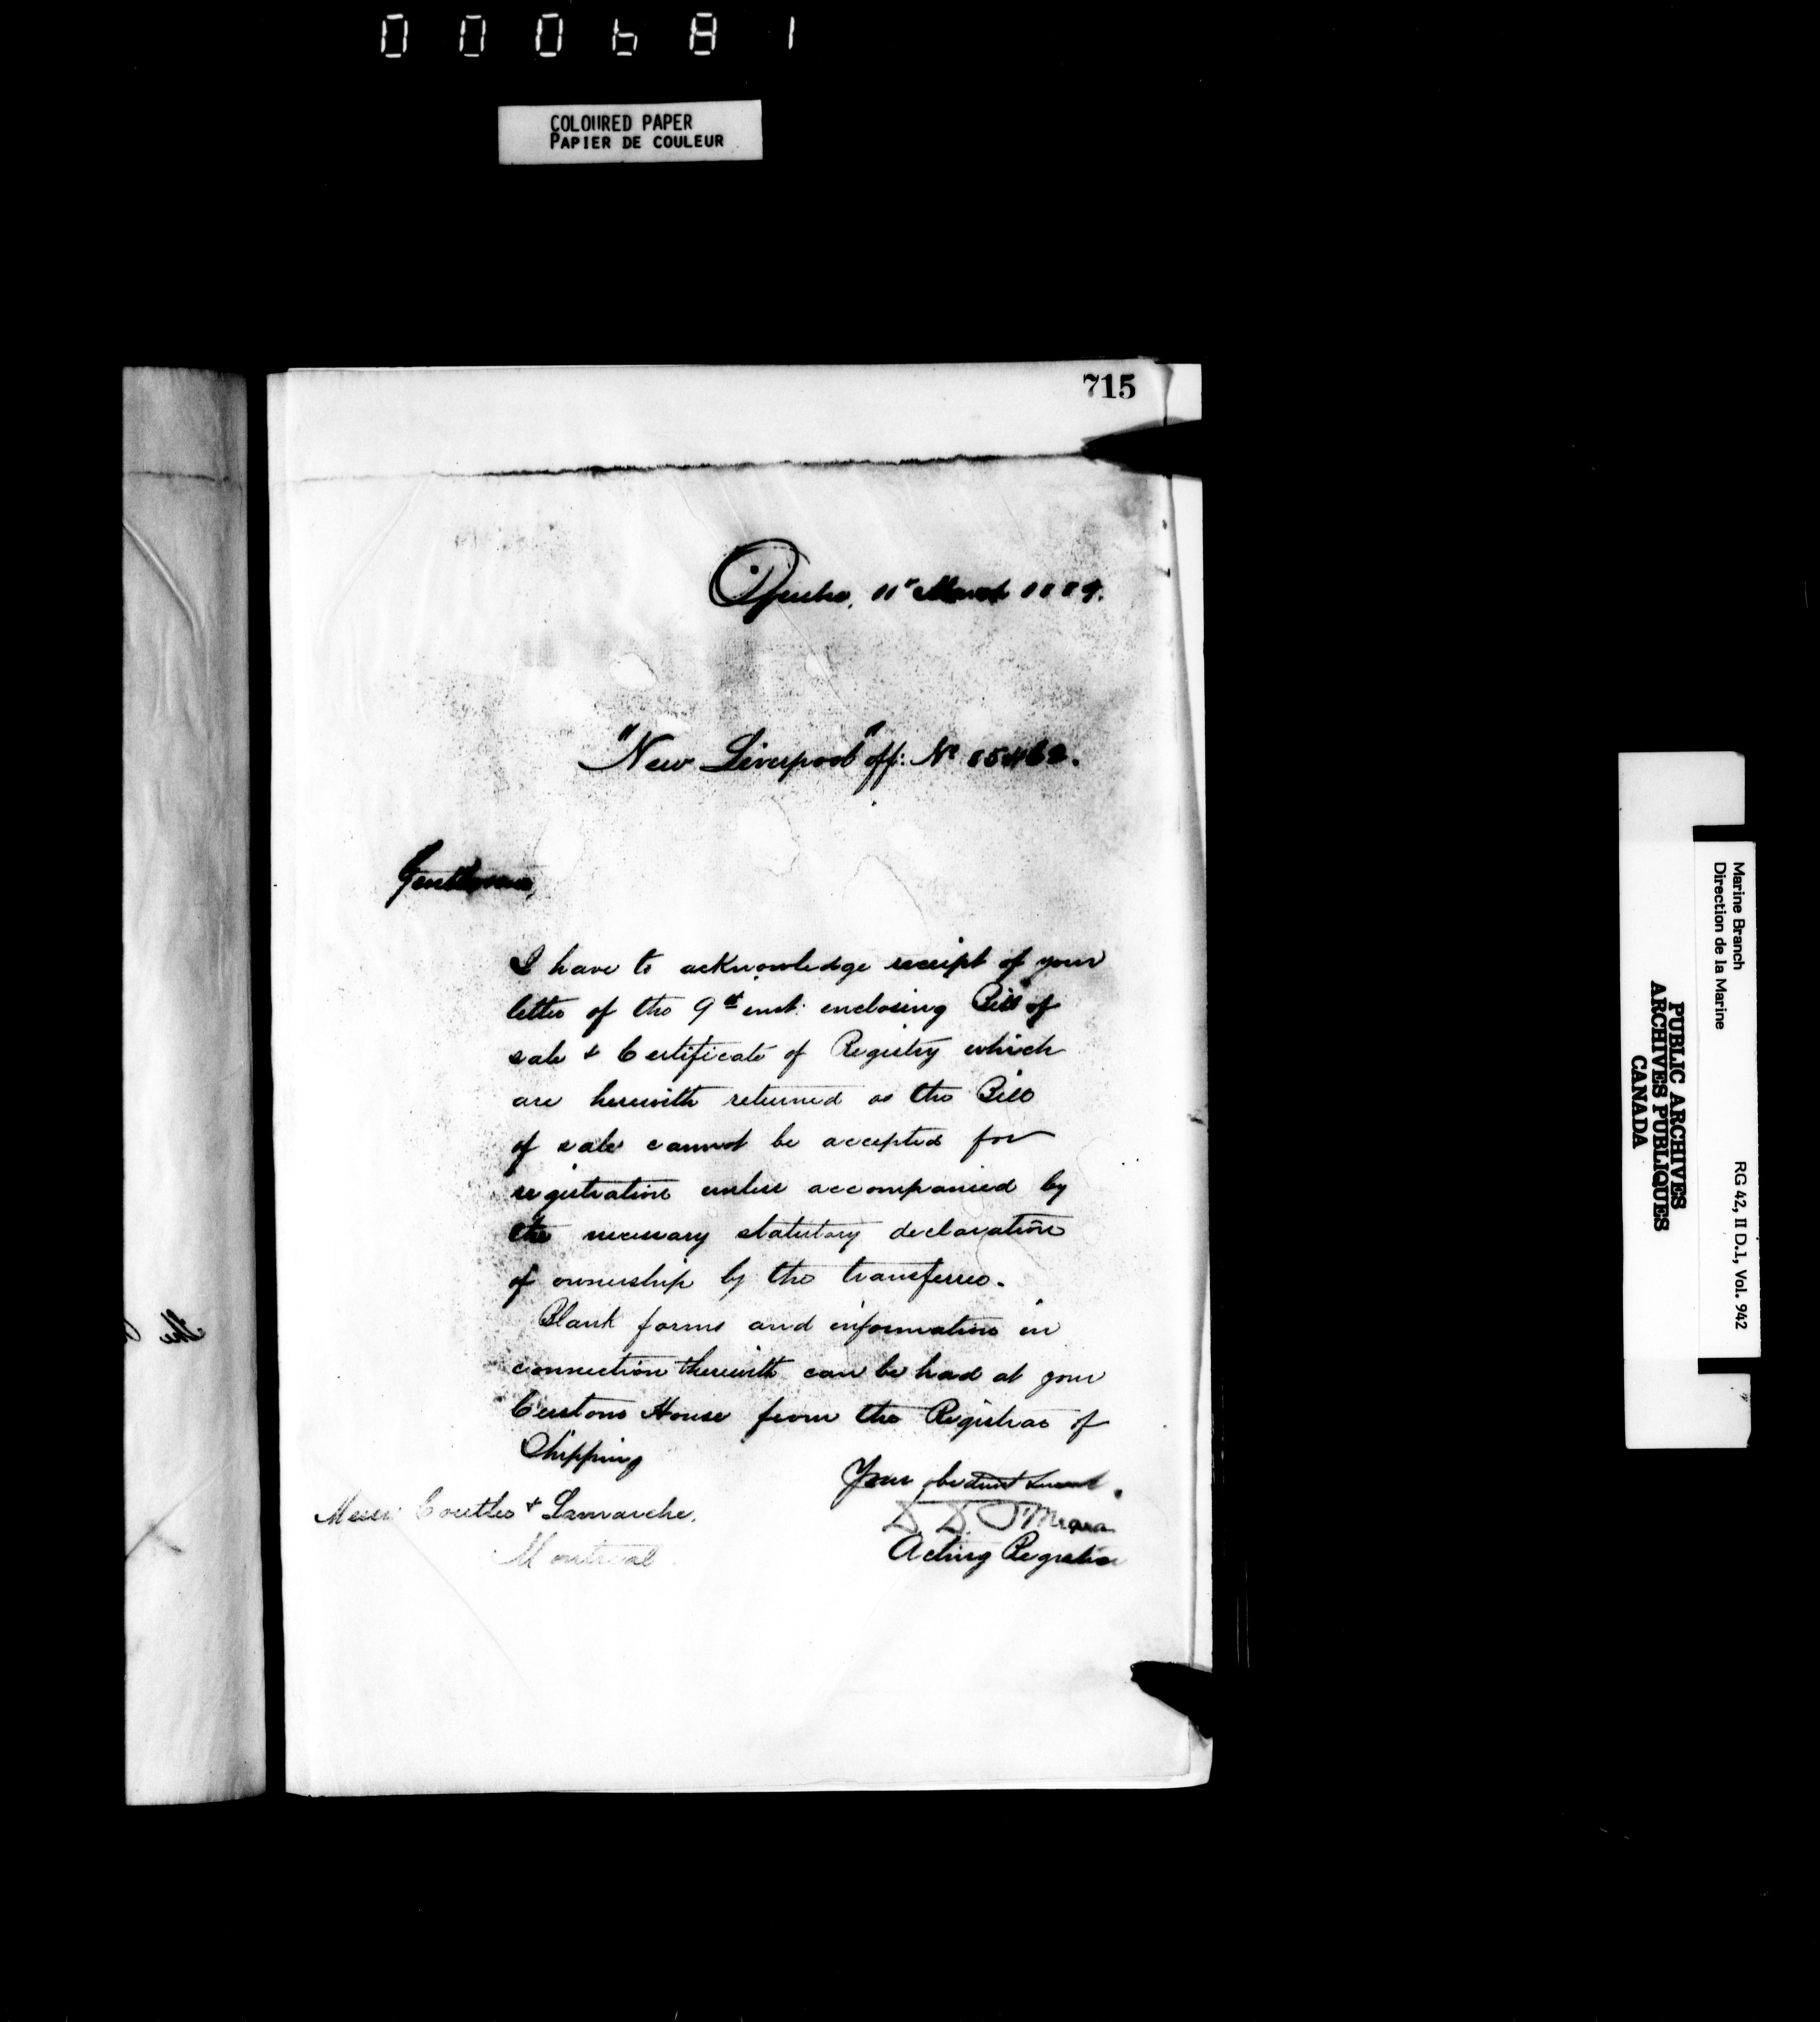 000681
COLOURED PAPER
PAPIER DE COULEUR
715
11th March 1889.
"New Liverpool" off: No
Gentlemen,
I have to acknowledge receipt of your
letter of the 9th inst: enclosing Bill of
sale & Certificate of Registry which
are herewith returned as the Bill
of sale cannot be accepted for
registration unless accompanied by
the necessary statutory declaration
of ownership by the transferree.
Blank forms and information in
connection therewith can be had at your
Customs House from the Registrar of
Shipping
Your obedient servant.
Acting Registrar
Messrs & Lamarche.
Montreal.
the
Marine Branch
Direction de la Marine
RG 42, II D.1, Vol. 942
PUBLIC ARCHIVES
ARCHIVES PUBLIQUES
CANADA